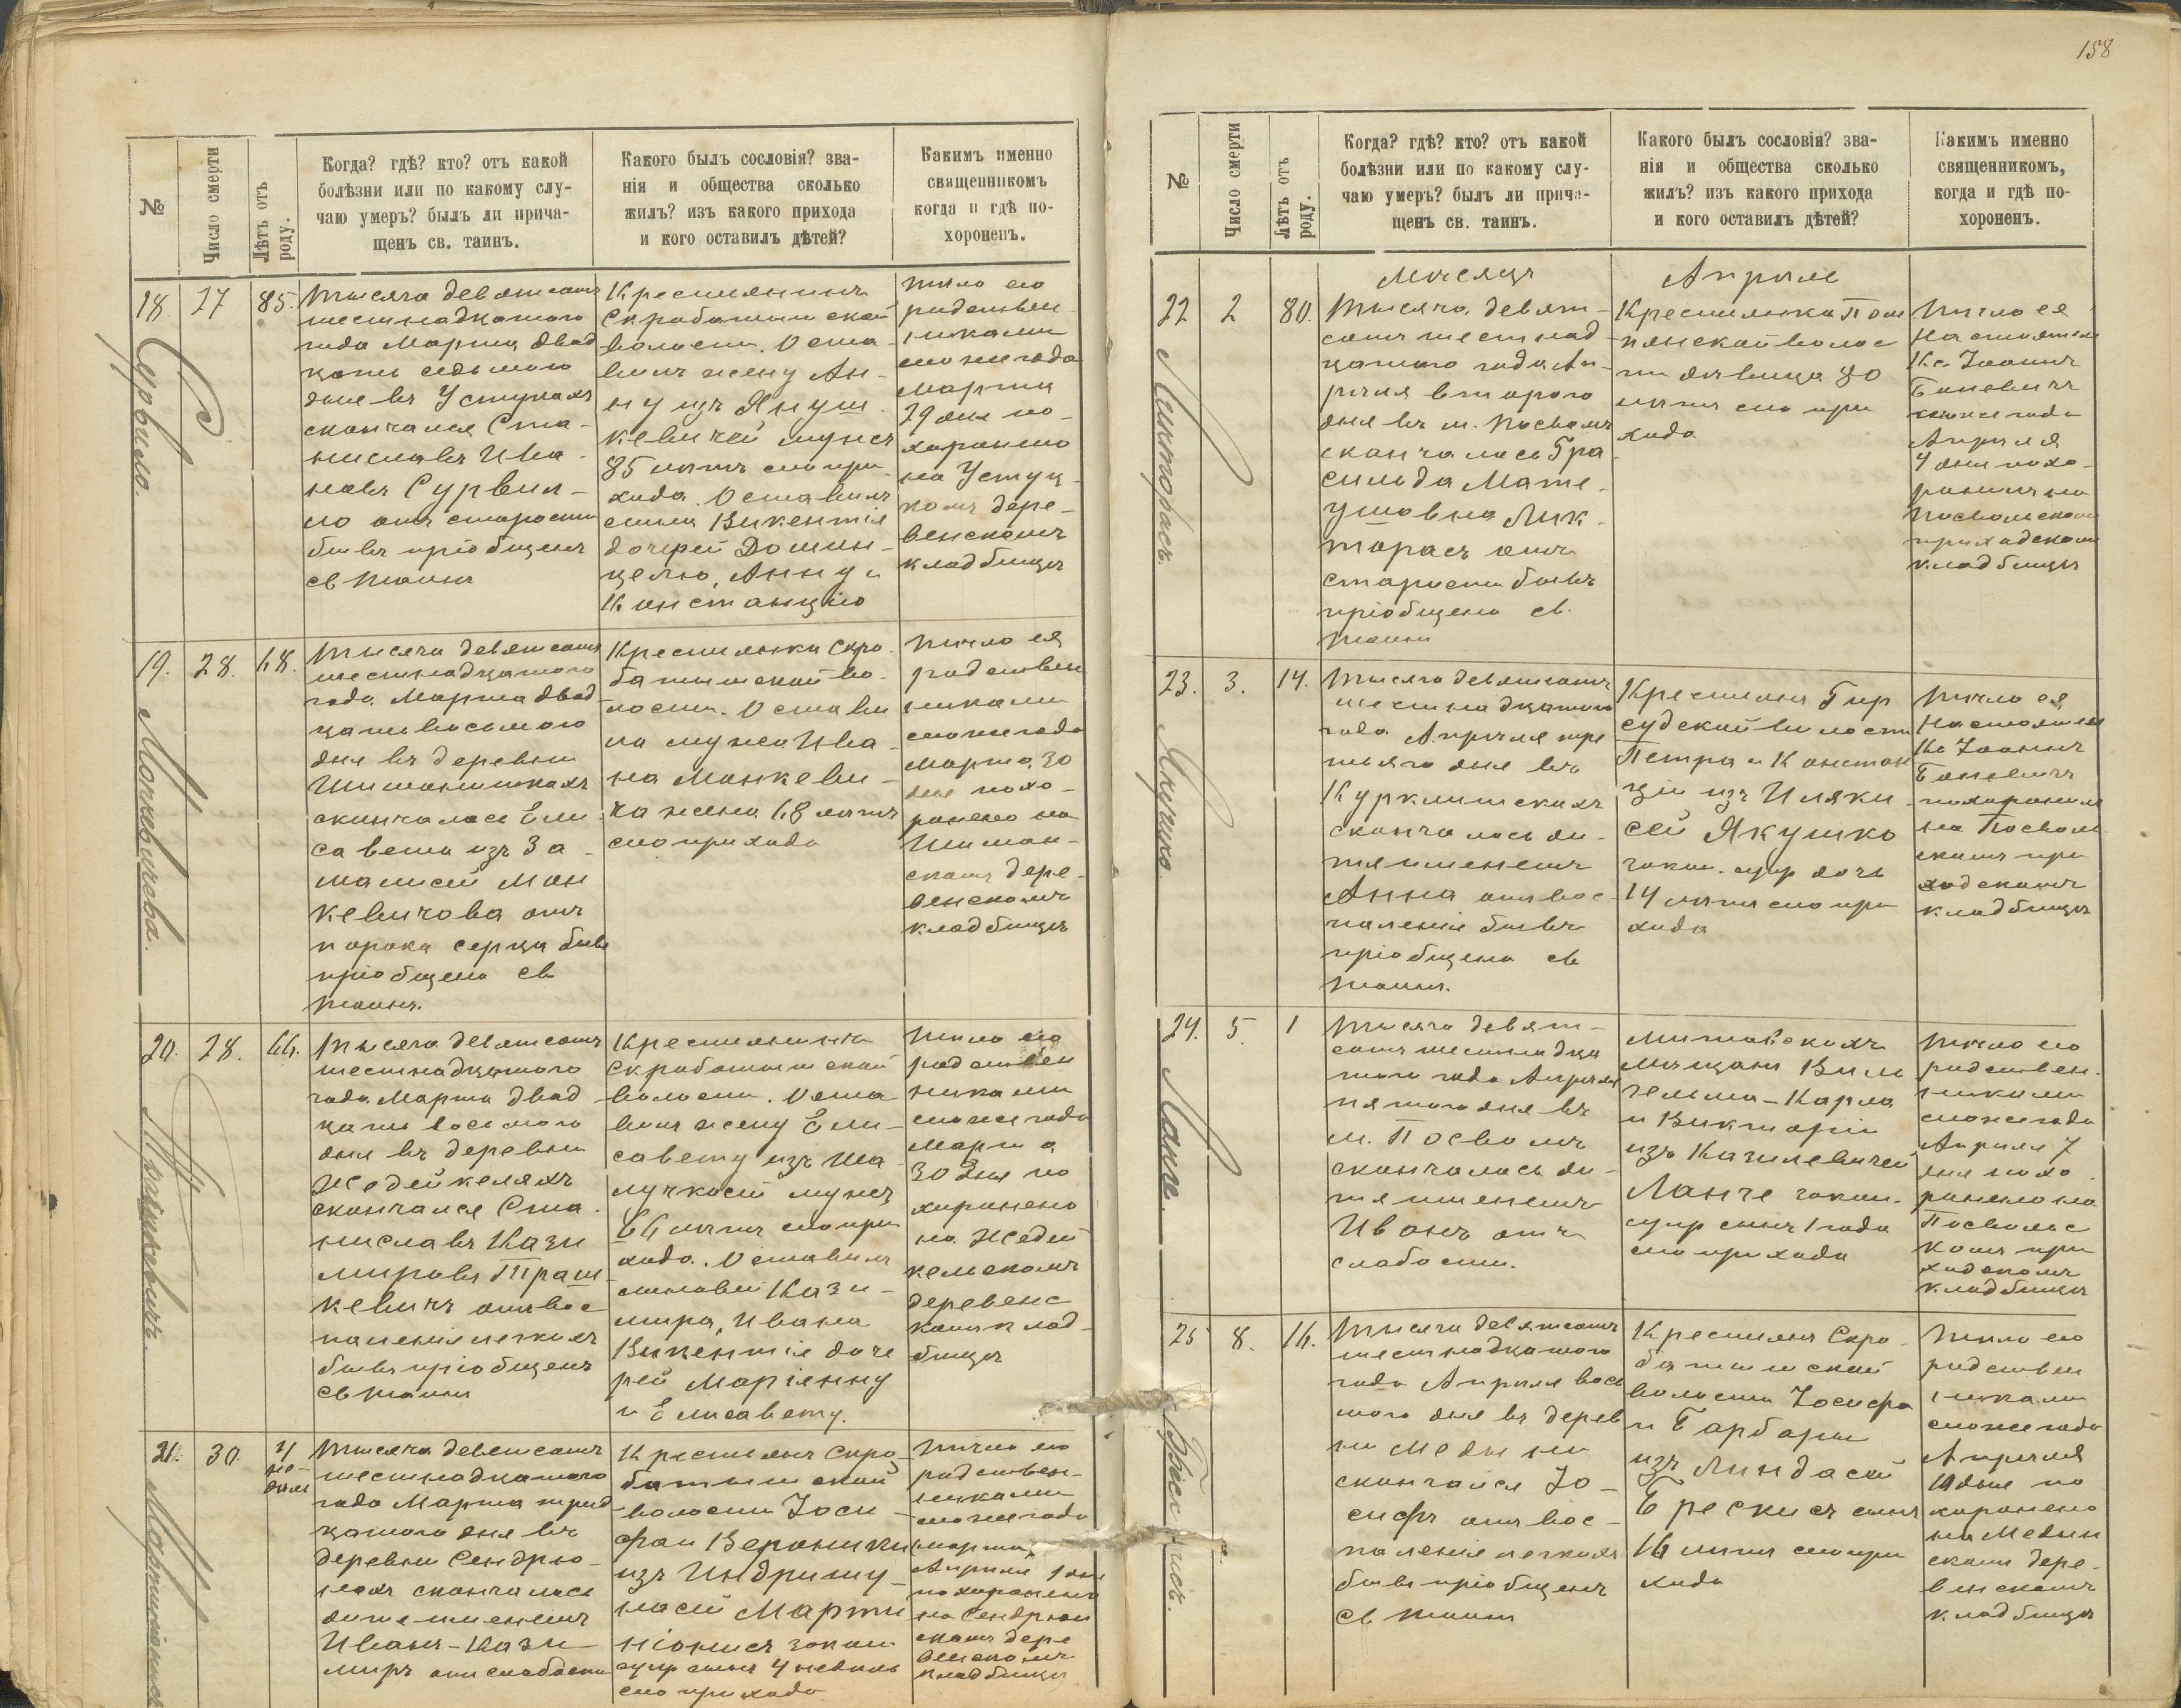 158
№
Число смерти
Лѣтъ отъ
роду.
Когда? гдѣ? кто? отъ какой
болѣзни или по какому слу-
чаю умеръ? былъ ли прича-
щенъ св. таинъ.
Какого былъ сословія? зва-
нія и общества сколько
жилъ? изъ какого прихода
и кого оставилъ дѣтей?
Какимъ именно
священникомъ
когда и гдѣ по-
хороненъ.
18.
27
85.
Сурвило.
Тысяча девятсотъ
шестнадцатого
года Марта двад
цать седьмого
дня въ Устукахъ
скончался Ста-
ниславъ Ива-
новъ Сурвил-
ло отъ старости
бывъ пріобщенъ
св таинъ
Крестьянинъ
Скробатышской
волости. Оста-
вилъ жену Ан-
ну изъ Януш-
кевичей мужъ
85 лѣтъ сего при-
хода. Оставилъ
сына Викентія
дочерей Домин-
целю, Анну и
Констанцію
тѣло его
родствен
никами
сего же года
Марта
29 дня по-
хоронено
на Устук-
комъ дере-
венскомъ
кладбищѣ
19.
28.
68.
Монкевичова.
Тысяча девятсотъ
шестнадцатого
года Марта двад
цать восьмого
дня въ деревни
Шиманишкахъ
скончалась Ели
савета изъ За-
малисей Мон
кевичова отъ
порока серца бывъ
пріобщена св
таинъ.
Крестьянка Скро-
батышской во-
лости. Остави
ла мужа Ива-
на Монкеви-
ча жена 68 лѣтъ
сего прихода
тѣло ея
родствен
никами
сего же года
Марта 30
дня похо-
ронено на
Шиман-
скомъ дере-
венскомъ
кладбищѣ
20.
28.
66.
Трашкевичъ.
Тысяча девятсотъ
шестнадцатого
года Марта двад
цать восьмого
дня въ деревни
Жедейкеляхъ
скончался Ста-
ниславъ Кази
мировъ Траш-
кевичъ отъ вос
паленія легкихъ
бывъ пріобщенъ
св таинъ
Крестьянинъ
Скробатышской
волости. Оста
вилъ жену Ели-
савету изъ Ша-
лучкосй мужъ
66 лѣтъ сего при
хода. Оставилъ
сыновей Кази-
мира, Ивана
Викентія доче
рей Маріянну
и Елисавету.
тѣло его
родствен
никами
сего же года
Марта
30 дня по
хоронено
на Жедей
кельскомъ
деревенс
комъ клад-
бищѣ
21.
30.
4
не-
дели
Мартиніонисъ
Тысяча девятсотъ
шестнадцатого
года Марта трид
цатого дня въ
деревни Сендрю-
нахъ скончалось
дитя именемъ
Иванъ-Кази
миръ отъ слабости
Крестьянъ Скро
батышской
волости Іоси-
фа и Вероники
изъ Индришу-
насй Марти
ніонисъ закон
супр сынъ 4 недѣль
сего прихода
тѣло его
родствен-
никами
сего же года
Апрѣля 1 дня
похоронено
на Сендрюн
скомъ дере
венскомъ
кладбищѣ
№
Число смерти
Лѣтъ отъ
роду.
Когда? гдѣ? кто? отъ какой
болѣзни или по какому слу-
чаю умеръ? былъ ли прича-
щенъ св. таинъ.
Какого былъ сословія? зва-
нія и общества сколько
жилъ? изъ какого прихода
и кого оставилъ дѣтей?
Какимъ именно
священникомъ,
когда и гдѣ по-
хороненъ.
Мѣсяцъ Апрѣль
22
2
80.
Ликторасъ.
Тысяча девят-
сотъ шестнад
цатого года Ап-
рѣля второго
дня въ м. Посволь
скончалась Гра
сильда Мате-
ушовна Лик-
торасъ отъ
старости бывъ
пріобщена св.
таинъ
Крестьянка Пом
пянской волос
ти дѣвица 80
лѣтъ сего при
хода
тѣло ея
Настоятель
Кс. Іоаннъ
Баневичъ
сего же года
Апрѣля
4 дня похо-
ронилъ на
Посвольскомъ
приходскомъ
кладбищѣ
23.
3.
14.
Якушко.
Тысяча девятсотъ
шестнадцатого
года Апрѣля тре
тьяго дня въ
Курклишскахъ
скончалась ди-
тя именемъ
Анна отъ вос-
паленія бывъ
пріобщена св
таинъ.
Крестьянъ Гир
судской волости
Петра и Констан
ціи изъ Иляки
сей Якушко
закон. супр дочь
14 лѣтъ сего при
хода
тѣло ея
Настоятель
Кс Іоаннъ
Баневичъ
похоронилъ
на Посволь
скомъ при
ходскомъ
кладбищѣ
24.
5.
1
Ланге.
Тысяча девят-
сотъ шестнадца
того года Апрѣля
пятого дня въ
м. Посволь
скончалось ди-
тя именемъ
Иванъ отъ
слабости.
Митавскихъ
мѣщанъ Виль
гельма-Карла
и Викторіи
изъ Казилевичей
Ланге закон.
супр сынъ 1 года
сего прихода
тѣло его
родствен-
никами
сего же года
Апрѣля 7
дня похо
ронено на
Посвольс
комъ при
ходскомъ
кладбищѣ
25
8.
16.
Тысяча девятсотъ
шестнадцатого
года Апрѣля вось
мого дня въ дерев
ни Медыни
скончался Іо-
сифъ отъ вос-
паленія легкихъ
бывъ пріобщенъ
св таинъ
Крестьянъ Скро-
батышской
волости Іосифа
и Барбары
изъ Линдасй
Брескисъ сынъ
16 лѣтъ сего при
хода
тѣло его
родствен
никами
сего же года
Апрѣля
10 дня по
хоронено
на Медын
скомъ дере-
венскомъ
кладбищѣ